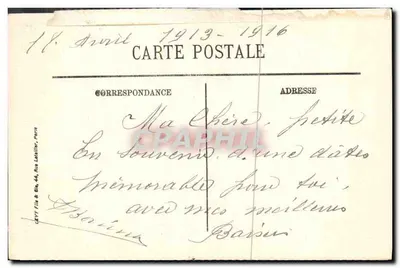 18. Avril 1913 - 1916
CARTE POSTALE
CORRESPONDANCE
ADRESSE
Ma Chère petite
En souvenir d'une dâtes
mémorable pour toi
avec mes meilleures
Baisers
LEVY Fils & Cie, 44, Rue Letellier, Paris
CPAPHIL